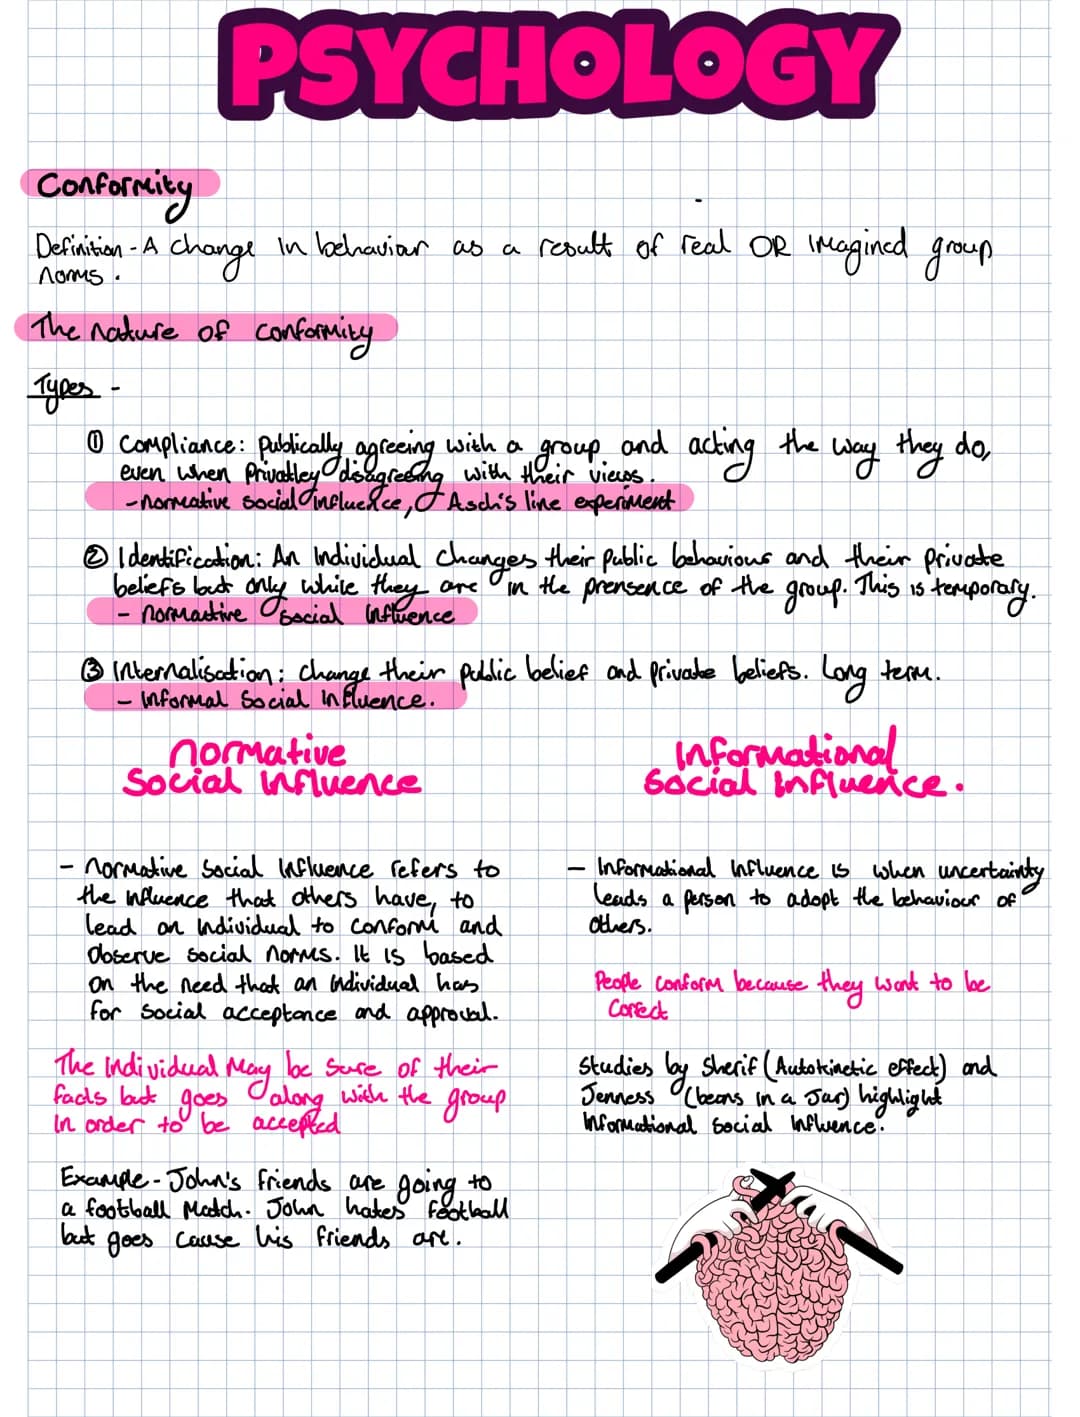 PSYCHOLOGY
Conformity
Definition - A change in behaviour as a result of real OR imagined group
norms.
The nature of conformity
Types -
① Compliance: Publically agreeing with a group and acting the way they do,
even when Privatley disagreeing with their views.
- normative social influence, Asch's line experiment
② Identification: An individual changes their public behaviours and their private
beliefs but only while they are in the prensence of the group. This is temporary.
- normative social influence
③ Internalisation: change their public belief and private beliefs. Long term.
- Informal Social Influence.
normative
Social Influence
- normative social influence refers to
the influence that others have, to
lead an individual to conform and
observe social norms. It is based
on the need that an individual has
for social acceptance and approval.
The individual may be sure of their
facts but goes along with the group
in order to be accepted
Example - John's friends are going to
a football match. John hates football
but goes cause his friends are.
Informational
Social Influence.
- Informational Influence is when uncertainty
leads a person to adopt the behaviour of
others.
People conform because they want to be
Correct
Studies by Sherif (Autokinetic effect) and
Jenness (beans in a Jar) highlight
informational social influence.